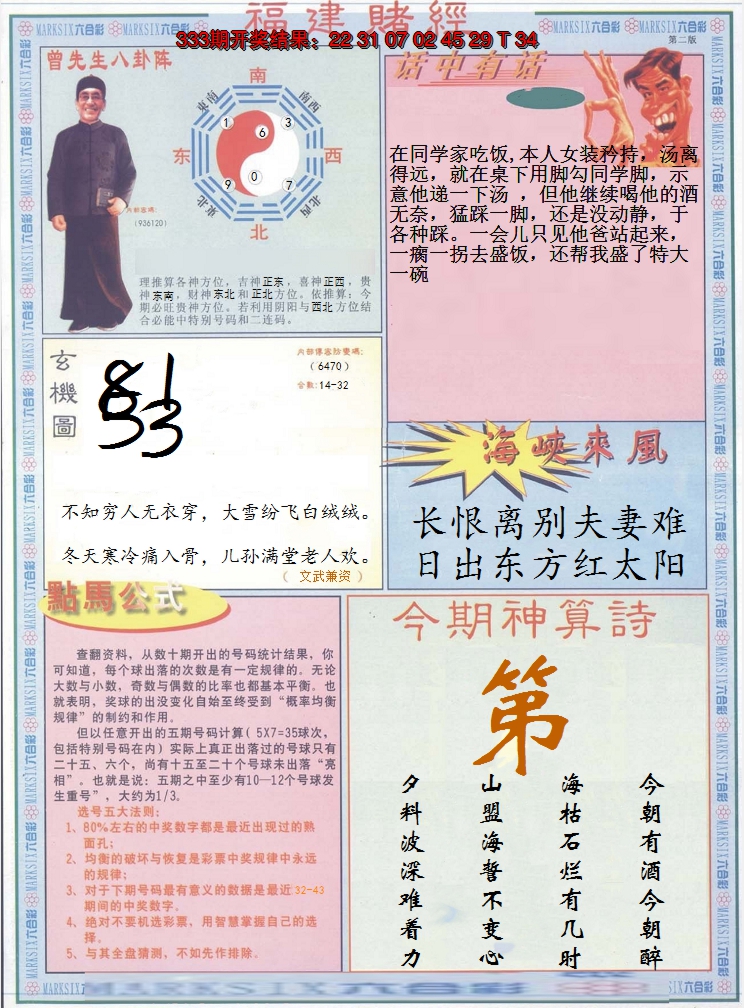 福建賭經
333期开奖结果：22 31 07 02 45 29 T 34
MARKSIX六合彩
第二版
曾先生八卦阵
南
东南
南西
1
6
3
东
西
9
0
7
东北
北西
北
内部密碼:
(936120)
理推算各神方位，吉神正东，喜神正西，贵
神东南，财神东北和正北方位。依推算：今
期必旺贵神方位。若利用阴阳与西北方位结
合必能中特别号码和二连码。
话中有话
在同学家吃饭,本人女装矜持，汤离
得远，就在桌下用脚勾同学脚，示
意他递一下汤 ，但他继续喝他的酒
无奈，猛踩一脚，还是没动静，于
各种踩。一会儿只见他爸站起来，
一瘸一拐去盛饭，还帮我盛了特大
一碗
玄機圖
内部傳密防變碼:
（6470）
合数:14-32
81
33
不知穷人无衣穿，大雪纷飞白绒绒。
冬天寒冷痛入骨，儿孙满堂老人欢。
（ 文武兼资 ）
海峽來風
长恨离别夫妻难
日出东方红太阳
點馬公式
查翻资料，从数十期开出的号码统计结果，你
可知道，每个球出落的次数是有一定规律的。无论
大数与小数，奇数与偶数的比率也都基本平衡。也
就表明，奖球的出没变化自始至终受到“概率均衡
规律”的制约和作用。
但以任意开出的五期号码计算( 5X7=35球次，
包括特别号码在内) 实际上真正出落过的号球只有
二十五、六个，尚有十五至二十个号球未出落“亮
相”。也就是说：五期之中至少有10—12个号球发
生重号”，大约为1/3。
选号五大法则：
1、80%左右的中奖数字都是最近出现过的熟
面孔；
2、均衡的破坏与恢复是彩票中奖规律中永远
的规律；
3、对于下期号码最有意义的数据是最近 32-43
期间的中奖数字。
4、绝对不要机选彩票，用智慧掌握自己的选
择。
5、与其全盘猜测，不如先作排除。
今期神算詩
第
今朝有酒今朝醉
海枯石烂有几时
山盟海誓不变心
夕料波深难着力